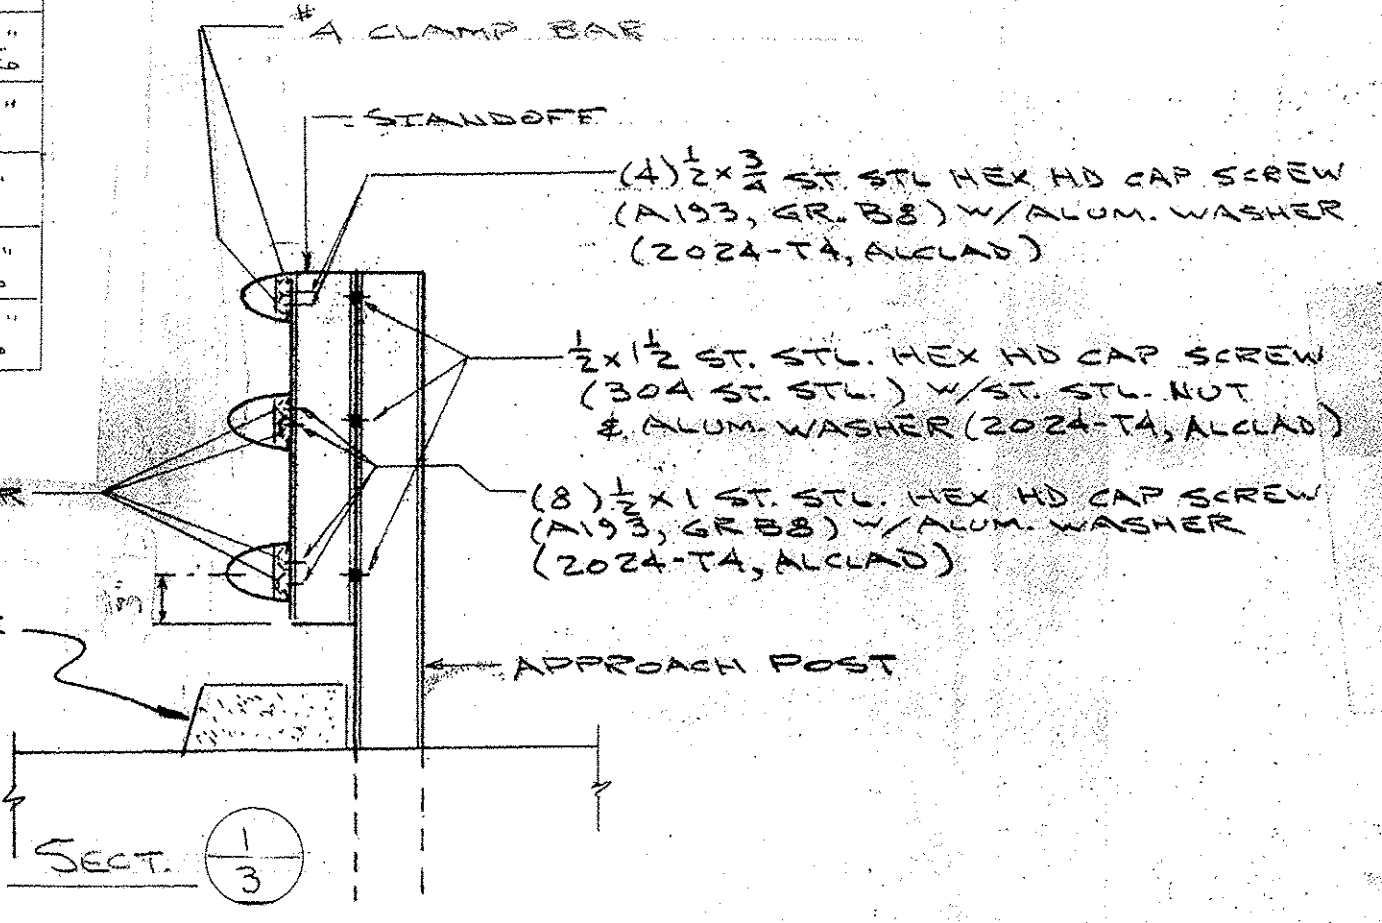 #4 CLAMP BAR
STANDOFF
(4) 1/2 x 3/4 ST. STL HEX HD CAP SCREW
(A193, GR. B8) W/ALUM. WASHER
(2024-T4, ALCLAD)
1/2 x 1 1/2 ST. STL. HEX HD CAP SCREW
(304 ST. STL.) W/ST. STL. NUT
& ALUM. WASHER (2024-T4, ALCLAD)
(8) 1/2 x 1 ST. STL. HEX HD CAP SCREW
(A193, GR B8) W/ALUM. WASHER
(2024-T4, ALCLAD)
APPROACH POST
SECT. 1
3